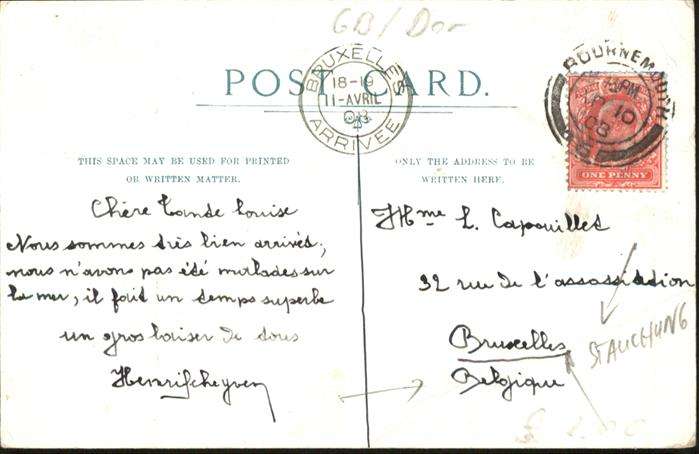 GB/Dor
POST CARD.
BRUXELLES
18-19
11-AVRIL
08
ARRIVÉE
BOURNEMOUTH
PM
AP 10
08
ONE PENNY
THIS SPACE MAY BE USED FOR PRINTED
OR WRITTEN MATTER.
ONLY THE ADDRESS TO BE
WRITTEN HERE.
Chère Tande Louise
Nous sommes très bien arrivés,
nous n'avons pas été malades sur
la mer, il fait un temps superbe
un gros baiser de tous
Henri Scheyven
Mme L. Capouillet
32 rue de l'association
Bruxelles
Belgique
STAUCHUNG